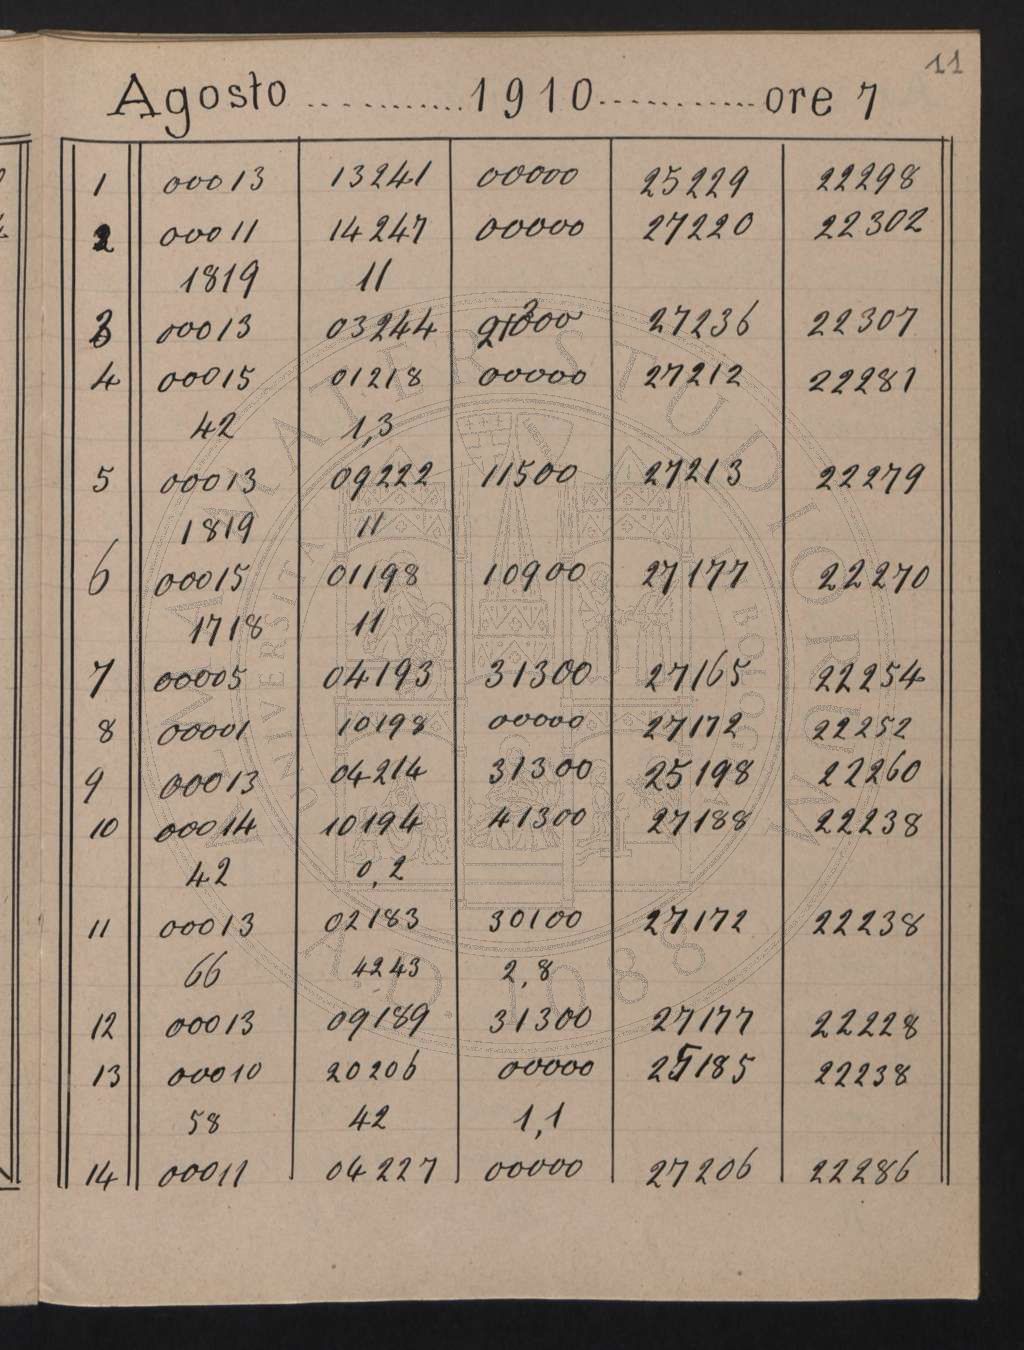 11
Agosto ............ 1910 ............ ore 7
1 00013 13241 00000 25229 22298
2 00011 14247 00000 27220 22302
1819 11
3 00013 03244 27236 22307
4 00015 01218 00000 27212 22281
42 1,3
5 00013 09222 11500 27213 22279
1819 11
6 00015 01198 10900 27177 22270
1718 11
7 00005 04193 31300 27165 22254
8 00001 10198 00000 27172 22252
9 00013 04214 31300 25198 22260
10 00014 10194 41300 27188 22238
42 0,2
11 00013 02183 30100 27172 22238
66 4243 2,8
12 00013 09189 31300 27177 22228
13 00010 20206 00000 25185 22238
58 42 1,1
14 00011 04227 00000 27206 22286
ALMA MATER STUDIORUM
A.D. 1088
UNIVERSITÀ